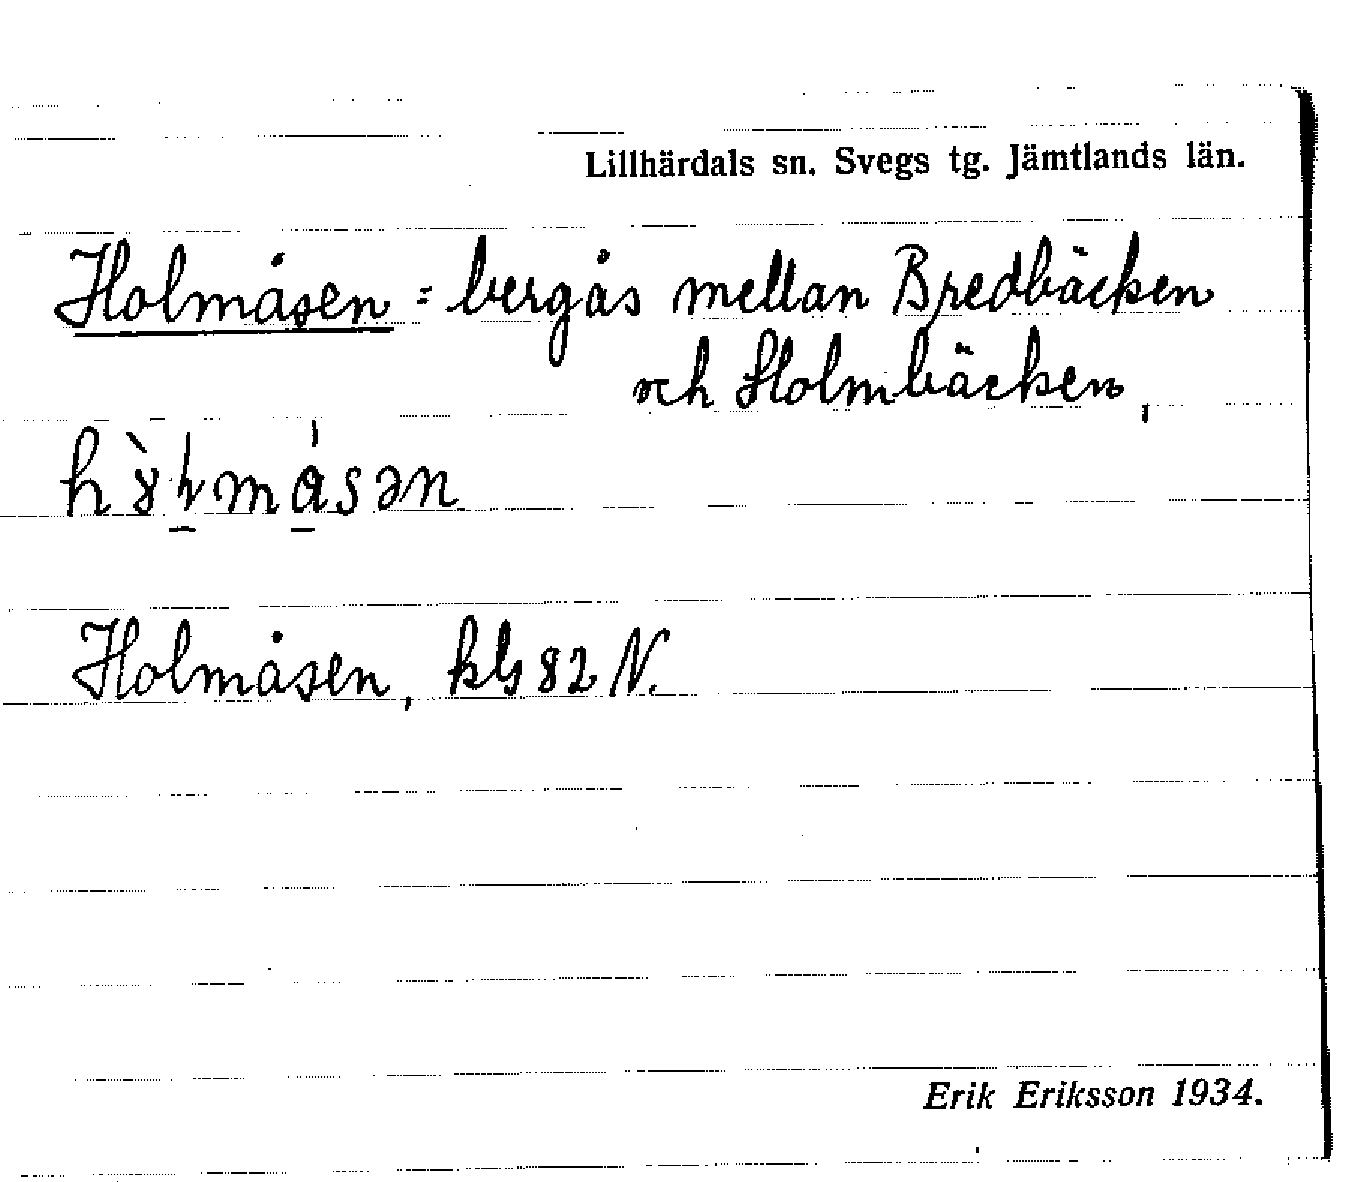 Lillhärdals sn. Svegs tg. Jämtlands län.
Holmåsen = bergås mellan Bredbäcken
och Holmbäcken,
Holmåsen, kbl 82 N.
Erik Eriksson 1934.